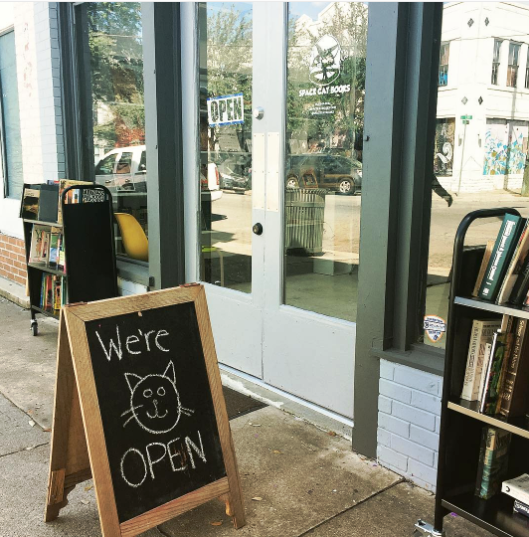 OPEN
SPACE CAT BOOKS
We're
OPEN